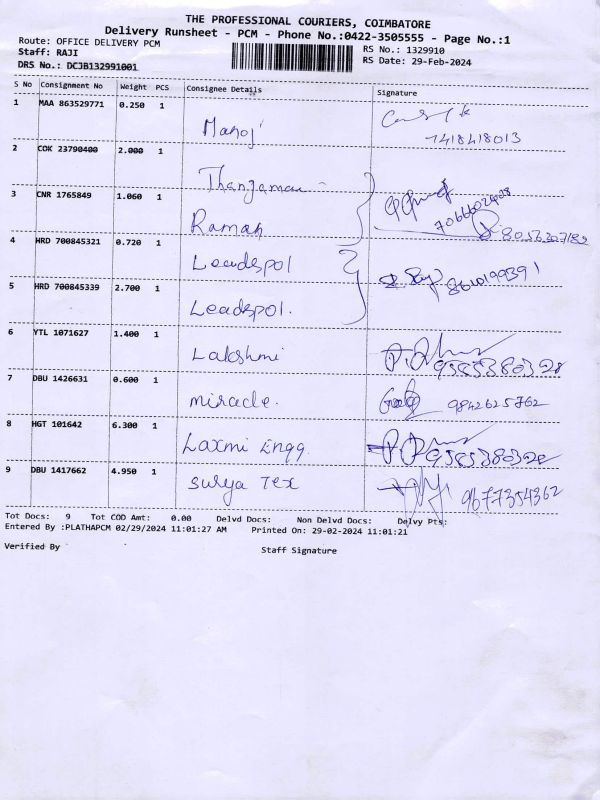 THE PROFESSIONAL COURIERS, COIMBATORE
Delivery Runsheet - PCM - Phone No.:0422-3505555 - Page No.:1
Route: OFFICE DELIVERY PCM RS No.: 1329910
Staff: RAJI RS Date: 29-Feb-2024
DRS No.: DCJB132991001
S No Consignment No Weight PCS Consignee Details Signature
1 MAA 863529771 0.250 1 Manoj 7418418013
2 COK 23790400 2.000 1 Thangamani
3 CNR 1765849 1.060 1 Raman
4 HRD 700845321 0.720 1 Leadspol
5 HRD 700845339 2.700 1 Leadspol.
6 YTL 1071627 1.400 1 Lakshmi 9585380328
7 DBU 1426631 0.600 1 miracle. 9842625762
8 HGT 101642 6.300 1 Laxmi Engg. 9585380328
9 DBU 1417662 4.950 1 Surya Tex 9677354362
Tot Docs: 9 Tot COD Amt: 0.00 Delvd Docs: Non Delvd Docs: Delvy Pts:
Entered By :PLATHAPCM 02/29/2024 11:01:27 AM Printed On: 29-02-2024 11:01:21
Verified By Staff Signature